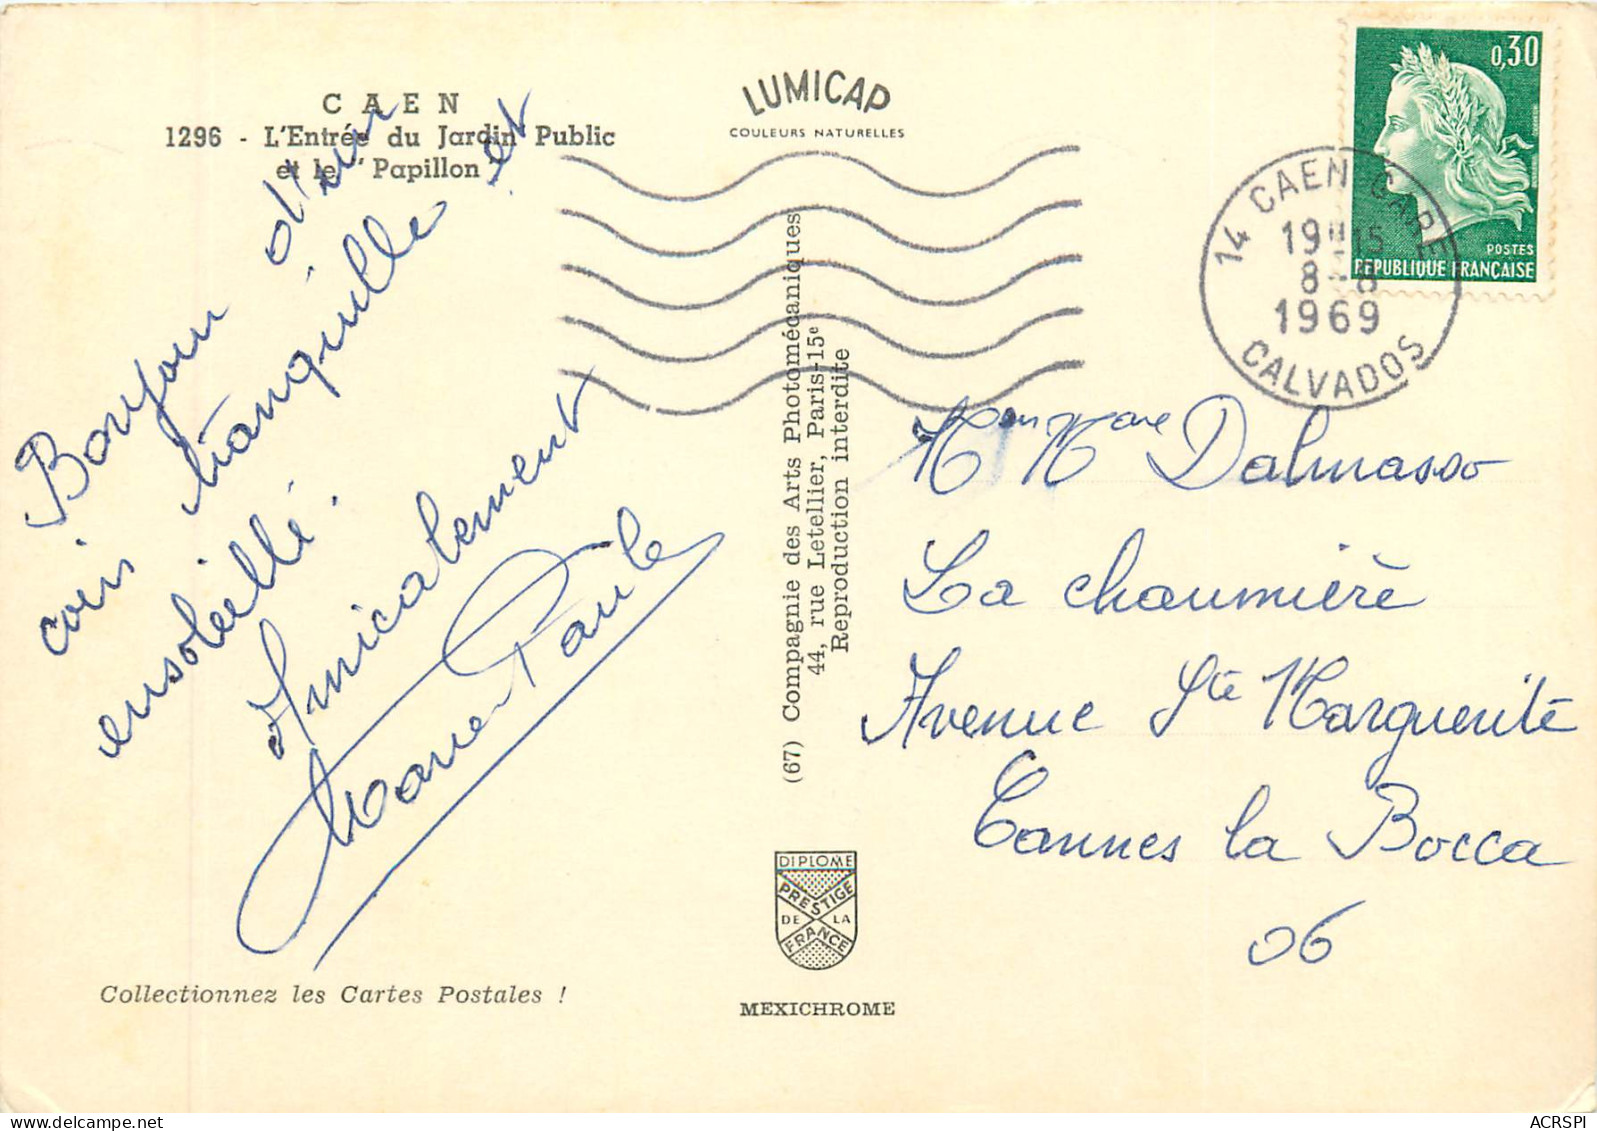 CAEN
1296 - L'Entrée du Jardin Public
et le "Papillon"
LUMICAP
COULEURS NATURELLES
0,30
POSTES
REPUBLIQUE FRANÇAISE
14 CAEN GARE
19H15
8-8
1969
CALVADOS
Bonjour d'un
coin tranquille et
ensoleillé.
Amicalement
Marie Paule
(67) Compagnie des Arts Photomécaniques
44, rue Letellier, Paris-15e
Reproduction interdite
Dalmasso
La chaumière
Avenue Ste Marguerite
Cannes la Bocca
06
DIPLOME
PRESTIGE
DE LA
FRANCE
Collectionnez les Cartes Postales !
MEXICHROME
ACRSPI